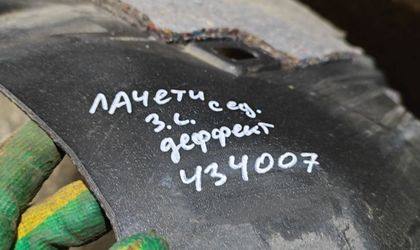 ЛАЧЕТИ сед.
З.Л.
деффект
434007